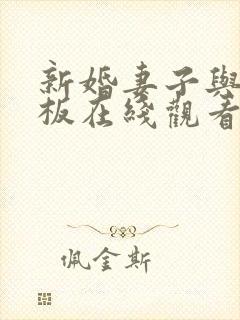 新婚妻子與
板在綫觀看
佩金斯